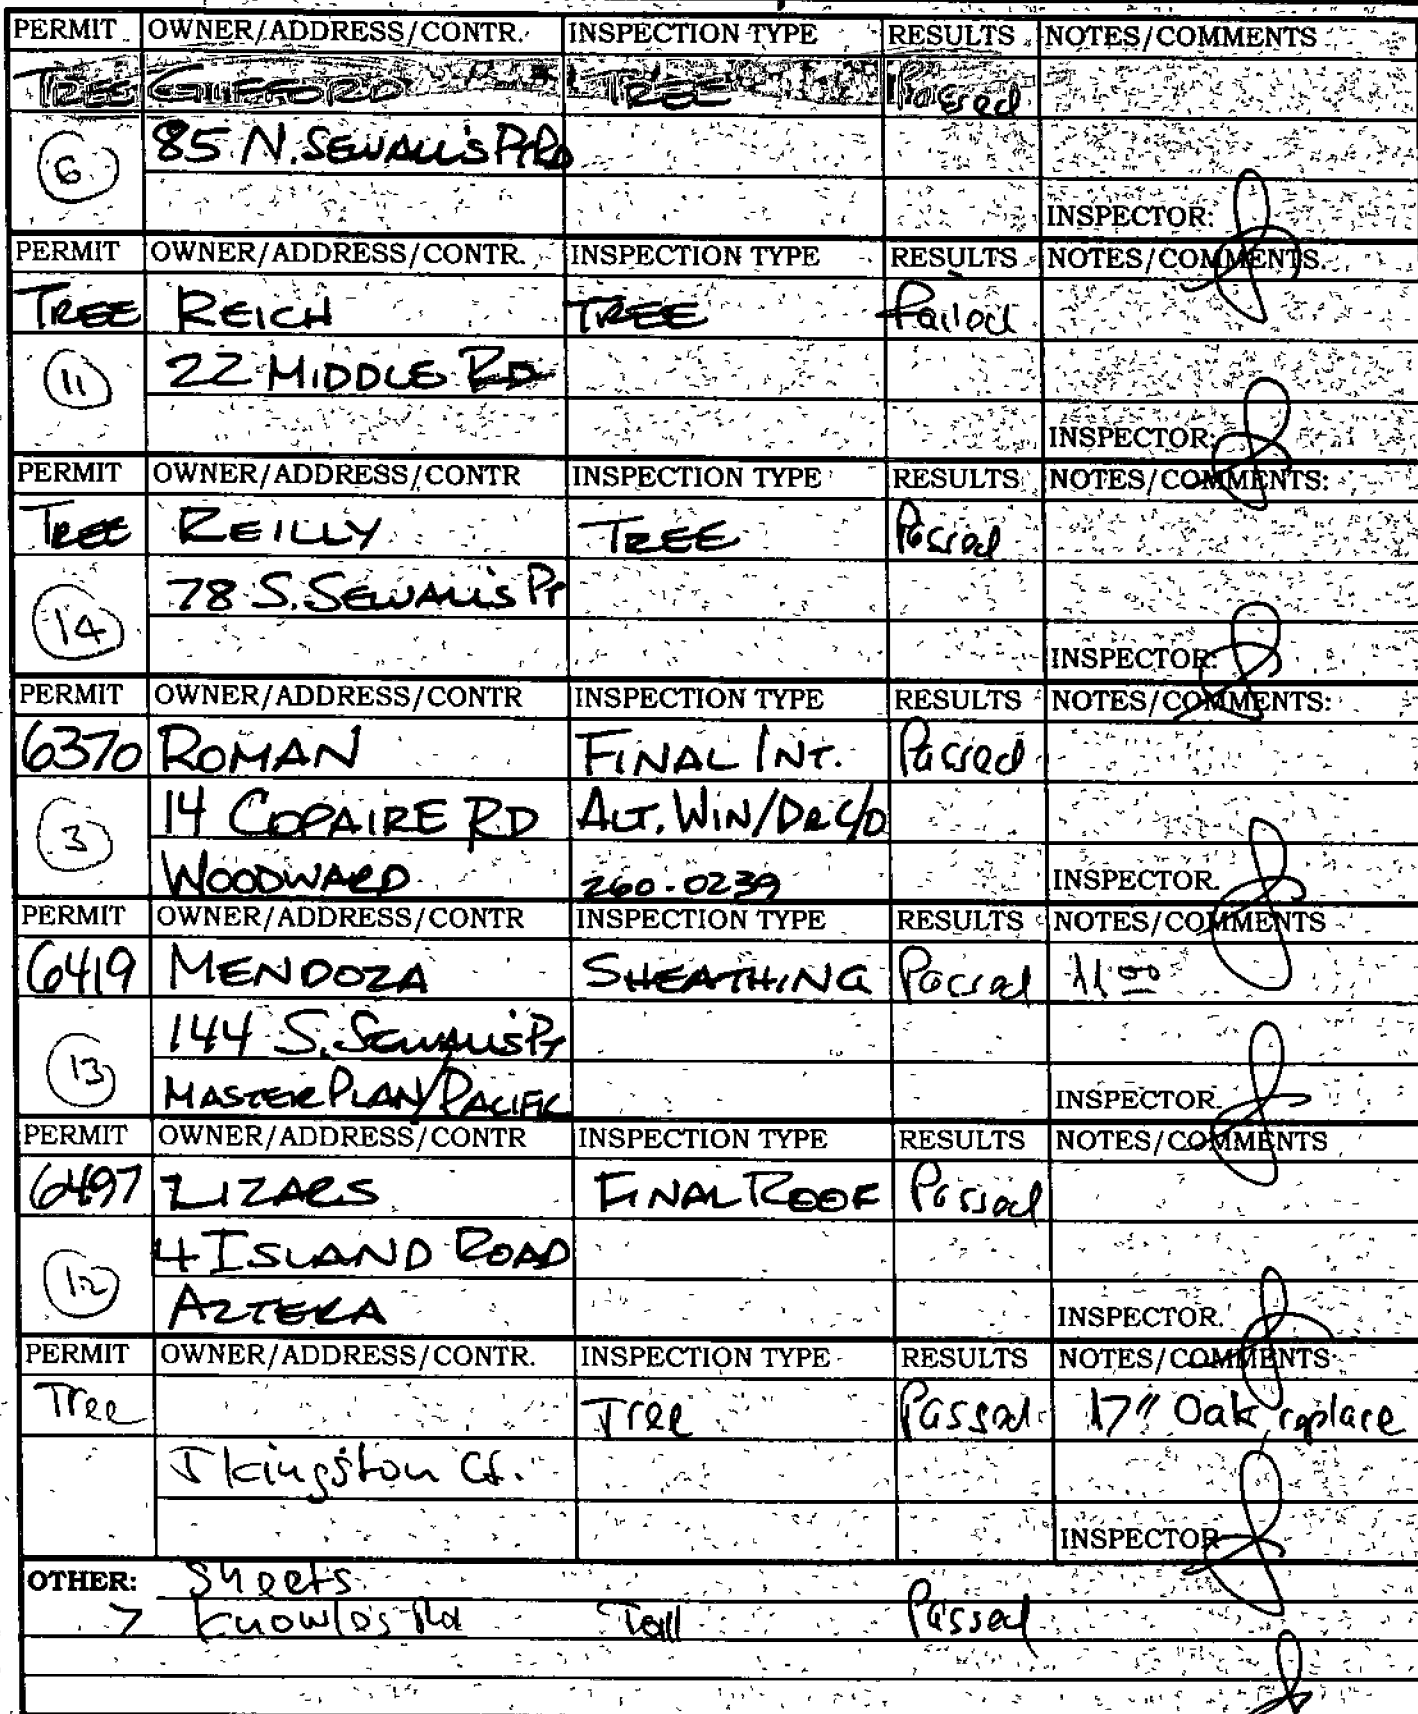 PERMIT OWNER/ADDRESS/CONTR. INSPECTION TYPE RESULTS NOTES/COMMENTS
TREE GIFFORD TREE Passed
6 85 N. SEWALL'S PT RD
INSPECTOR:
PERMIT OWNER/ADDRESS/CONTR. INSPECTION TYPE RESULTS NOTES/COMMENTS.
TREE REICH TREE Failed
11 22 MIDDLE RD
INSPECTOR:
PERMIT OWNER/ADDRESS/CONTR INSPECTION TYPE RESULTS NOTES/COMMENTS:
TREE REILLY TREE Passed
14 78 S. SEWALL'S PT
INSPECTOR:
PERMIT OWNER/ADDRESS/CONTR INSPECTION TYPE RESULTS NOTES/COMMENTS:
6370 ROMAN FINAL INT. Passed
3 14 COPAIRE RD ALT. WIN/DR C/O
WOODWARD 260-0239 INSPECTOR.
PERMIT OWNER/ADDRESS/CONTR INSPECTION TYPE RESULTS NOTES/COMMENTS
6419 MENDOZA SHEATHING Passed 11 00
13 144 S. SEWALL'S PT
MASTERPLAN/PACIFIC INSPECTOR.
PERMIT OWNER/ADDRESS/CONTR INSPECTION TYPE RESULTS NOTES/COMMENTS
6497 LIZARS FINAL ROOF Passed
12 4 ISLAND ROAD
AZTEKA INSPECTOR.
PERMIT OWNER/ADDRESS/CONTR. INSPECTION TYPE RESULTS NOTES/COMMENTS
Tree Tree Passed 17" Oak replace
Kingston Ct.
INSPECTOR
OTHER: Sheets
7 Knowles Rd Passed